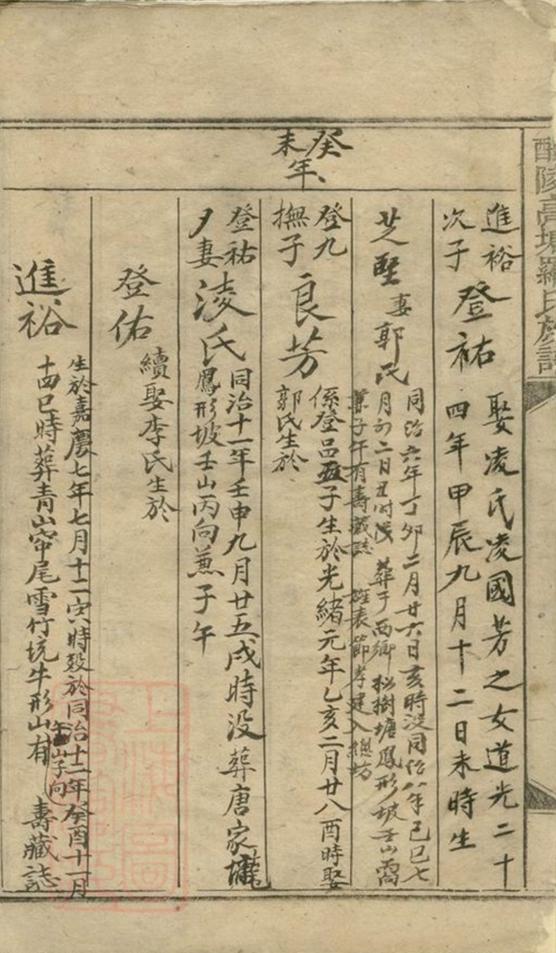 醴陵高塘羅氏族譜
癸未年、
進裕次子 登祐 娶凌氏凌國芳之女道光二十
四年甲辰九月十二日未時生
芝堅妻郭氏 同治六年丁卯二月廿六日亥時没同治八年己巳七
月初二日丑時没 葬于西鄉松樹塘鳳形坡壬山丙
兼子午有壽藏誌 旌表節孝建入總坊
登九撫子 良芳 係登呂五子生於光緒元年乙亥二月廿八酉時娶
郭氏生於
登祐夕妻 淩氏 同治十一年壬申九月廿五戌時没葬唐家壠
鳳形坡壬山丙向兼子午
登佑 續娶李氏生於
進裕 生於嘉慶七年七月十二寅時殁於同治十二年癸酉十一月
十四巳時葬青山帘尾雪竹坑牛形山有 午山子向 壽藏誌